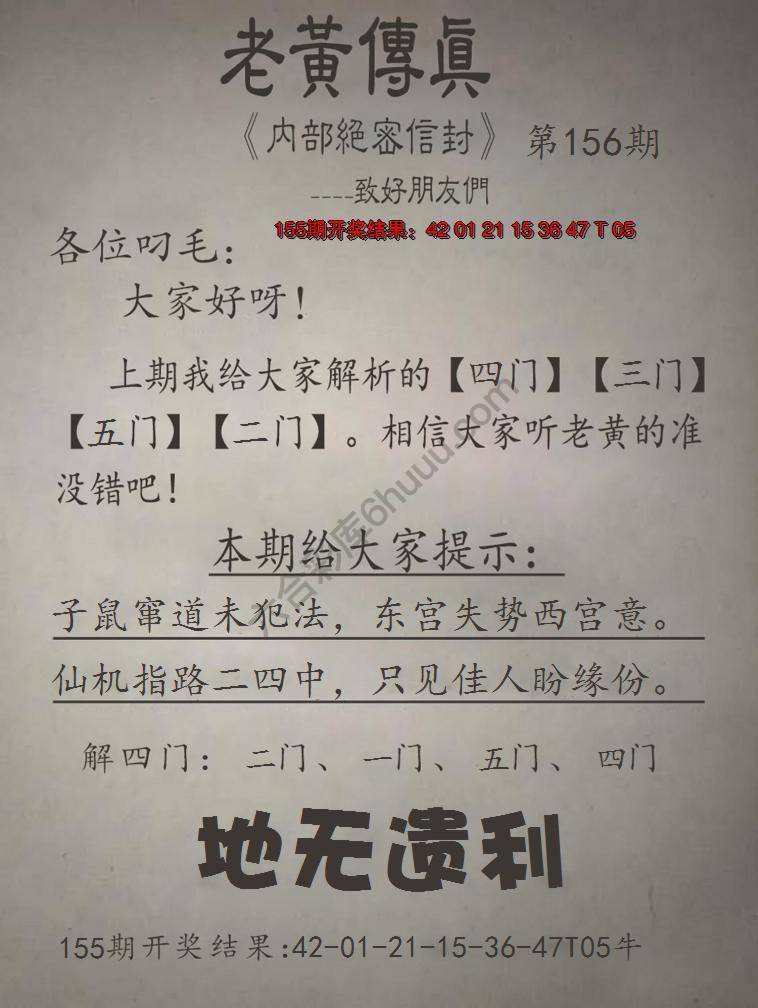 老黃傳眞
《内部絕密信封》 第156期
----致好朋友們
155期开奖结果：42 01 21 15 36 47 T 05
各位叼毛：
大家好呀！
上期我给大家解析的【四门】【三门】
【五门】【二门】。相信大家听老黄的准
没错吧！
本期给大家提示：
子鼠窜道未犯法，东宫失势西宫意。
仙机指路二四中，只见佳人盼缘份。
解四门： 二门、 一门、 五门、 四门
地无遗利
155期开奖结果:42-01-21-15-36-47T05牛
六合彩库6huuu.com